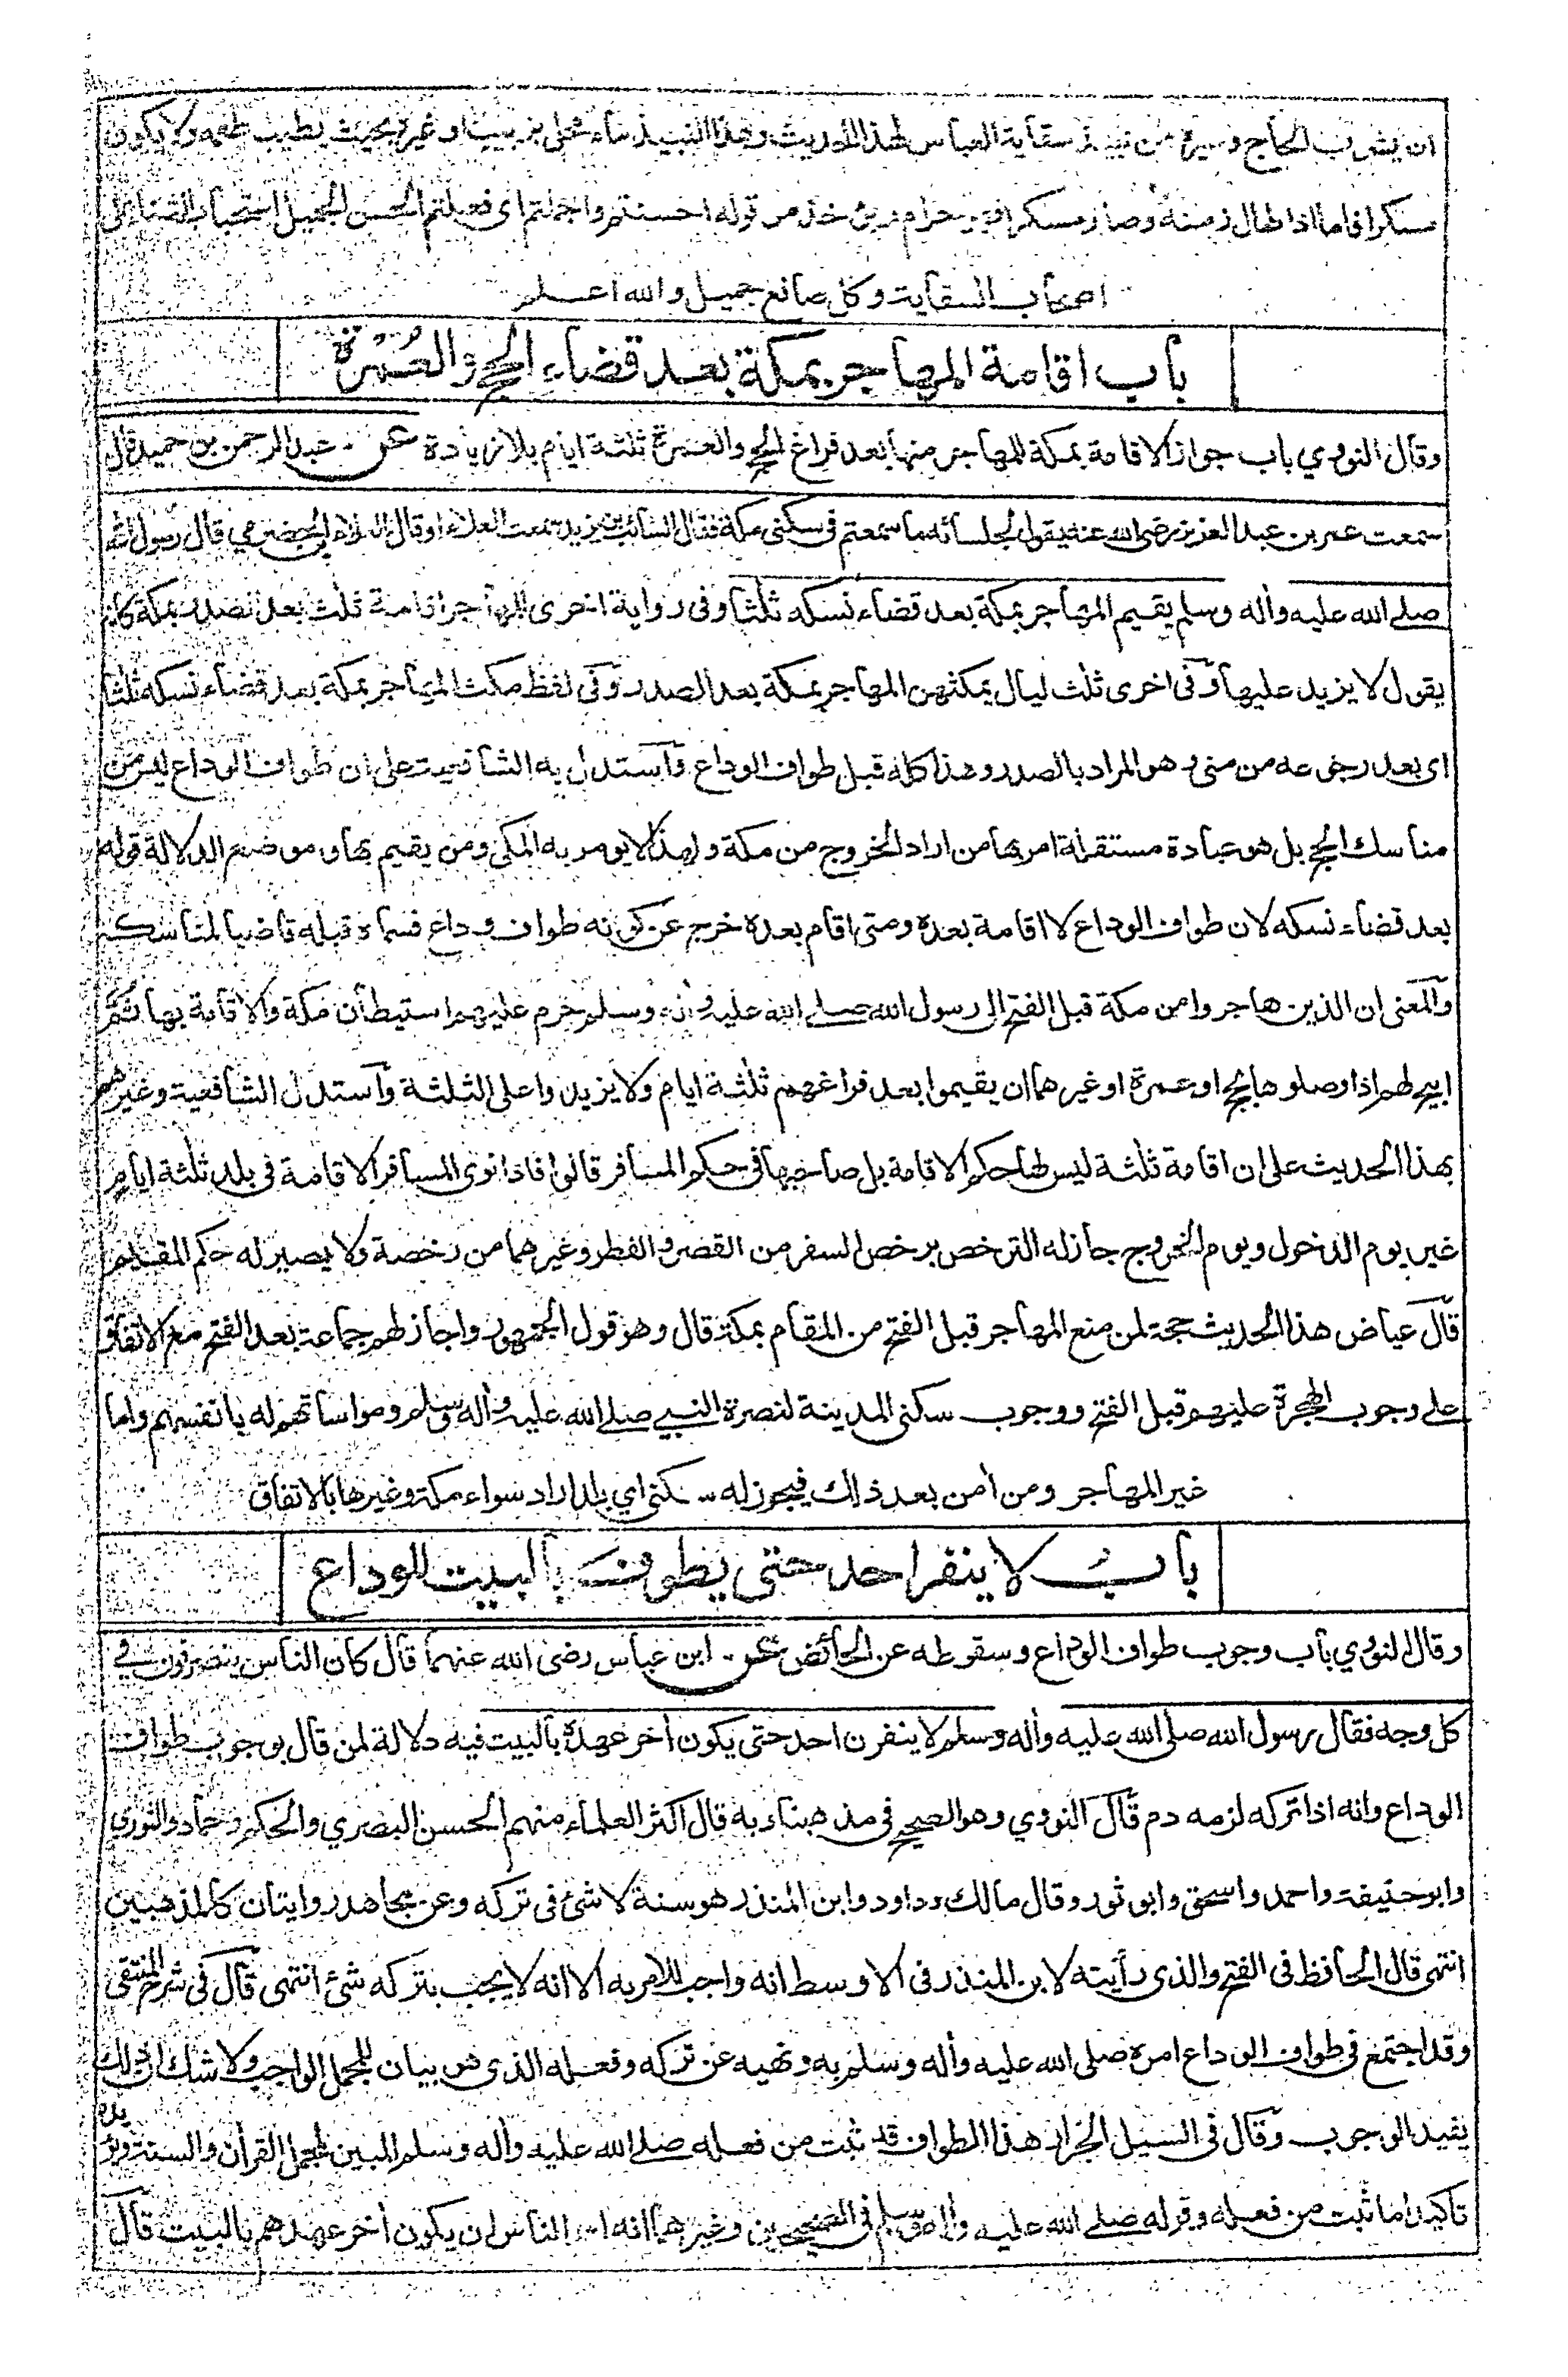 ان يشرب الحاج وغيره من نبيذ سقاية العباس لهذا الحديث وهذا النبيذ ماء محلى بزبيب او غيره بحيث يطيب طعمه ولا يكون
مسكرا فاما اذا طال زمنه وصار مسكرا فهو حرام قوله احسنتم واجملتم اى فعلتم الحسن الجميل استحباب الثناء على
اصحاب السقاية وكل صانع جميل والله اعلم
باب اقامة المهاجر بمكة بعد قضاء الحج والعُمْرة
وقال النووي باب جواز الاقامة بمكة للمهاجر منها بعد فراغ الحج والعمرة ثلثة ايام بلا زيادة عن عبد الرحمن بن حميد قال
سمعت عمر بن عبد العزيز رضى الله عنه يقول لجلسائه ما سمعتم فى سكنى مكة فقال السائب بن يزيد سمعت العلاء او قال العلاء بن الحضرمي قال رسول الله
صلے الله عليه وأله وسلم يقيم المهاجر بمكة بعد قضاء نسكه ثلثا وفى رواية اخرى للمهاجر اقامة ثلث بعد الصدر بمكة كانه
يقول لا يزيد عليها وفى اخرى ثلث ليال يمكثهن المهاجر بمكة بعد الصدر وفى لفظ مكث المهاجر بمكة بعد قضاء نسكه ثلثا
اى بعد رجوعه من منى وهو المراد بالصدر وهذا كله قبل طواف الوداع وآستدل به الشافعية على ان طواف الوداع ليس من
مناسك الحج بل هو عبادة مستقلة امر بها من اراد الخروج من مكة ولهذا لا يومر به المكى ومن يقيم بها وموضع الدلالة قوله
بعد قضاء نسكه لان طواف الوداع لا اقامة بعده ومتى اقام بعده خرج عن كونه طواف وداع فسماه قبله قاضيا لمناسكه
وآلمعنى ان الذين هاجروا من مكة قبل الفتح الى رسول الله صلے الله عليه وأله وسلم حرم عليهم استيطان مكة والاقامة بها ثم
ابيح لهم اذا وصلوها بحج او عمرة او غيرهما ان يقيموا بعد فراغهم ثلثة ايام ولا يزيدوا على الثلثة وآستدل الشافعية وغيرهم
بهذا الحديث على ان اقامة ثلثة ليس لها حكم الاقامة بل صاحبها فى حكم المسافر قالوا فاذا نوى المسافر الاقامة فى بلد ثلثة ايام
غير يوم الدخول ويوم الخروج جاز له الترخص برخص السفر من القصر والفطر وغيرهما من رخصة ولا يصير له حكم المقيم
قآل عياض هذا الحديث حجة لمن منع المهاجر قبل الفتح من المقام بمكة قال وهو قول الجمهور واجاز لهم جماعة بعد الفتح مع الاتفاق
على وجوب الهجرة عليهم قبل الفتح ووجوب سكنى المدينة لنصرة النبي صلے الله عليه وأله وسلم ومواساتهم له بانفسهم واما
غير المهاجر ومن أمن بعد ذلك فيجوز له سكنى اي بلد اراد سواء مكة وغيرها بالاتفاق
باب لا ينفر احد حتى يطوف بالبيت للوداع
وقال النووي باب وجوب طواف الوداع وسقوطه عن الحائض عن ابن عباس رضى الله عنهما قال كان الناس ينصرفون في
كل وجه فقال رسول الله صلى الله عليه وأله وسلم لا ينفرن احد حتى يكون أخر عهده بالبيت فيه دلالة لمن قال بوجوب طواف
الوداع وانه اذا تركه لزمه دم قآل النووي وهو الصحيح فى مذهبنا وبه قال اكثر العلماء منهم الحسن البصري والحكم وحماد والثوري
وابو حنيفة واحمد واسحق وابو ثور وقال مالك وداود وابن المنذر هو سنة لا شئ فى تركه وعن مجاهد روايتان كالمذهبين
انتهى قال الحافظ فى الفتح والذى رأيته لابن المنذر فى الاوسط انه واجب للامر به الا انه لا يجب بتركه شئ انتهى قآل فى شرح المنتقى
وقد اجتمع فى طواف الوداع امره صلى الله عليه وأله وسلم به ونهيه عن تركه وفعله الذى هو بيان للمجمل الواجب ولا شك ان ذلك
يفيد الوجوب وقآل فى السيل الجرار هذا الطواف قد ثبت من فعله صلے الله عليه وأله وسلم المبين لمجمل القرأن والسنة ويزيده
تاكيدا ما ثبت من فعله وقوله صلے الله عليه وأله وسلم فى الصحيحين وغيرهما انه امر الناس ان يكون أخر عهدهم بالبيت قآل